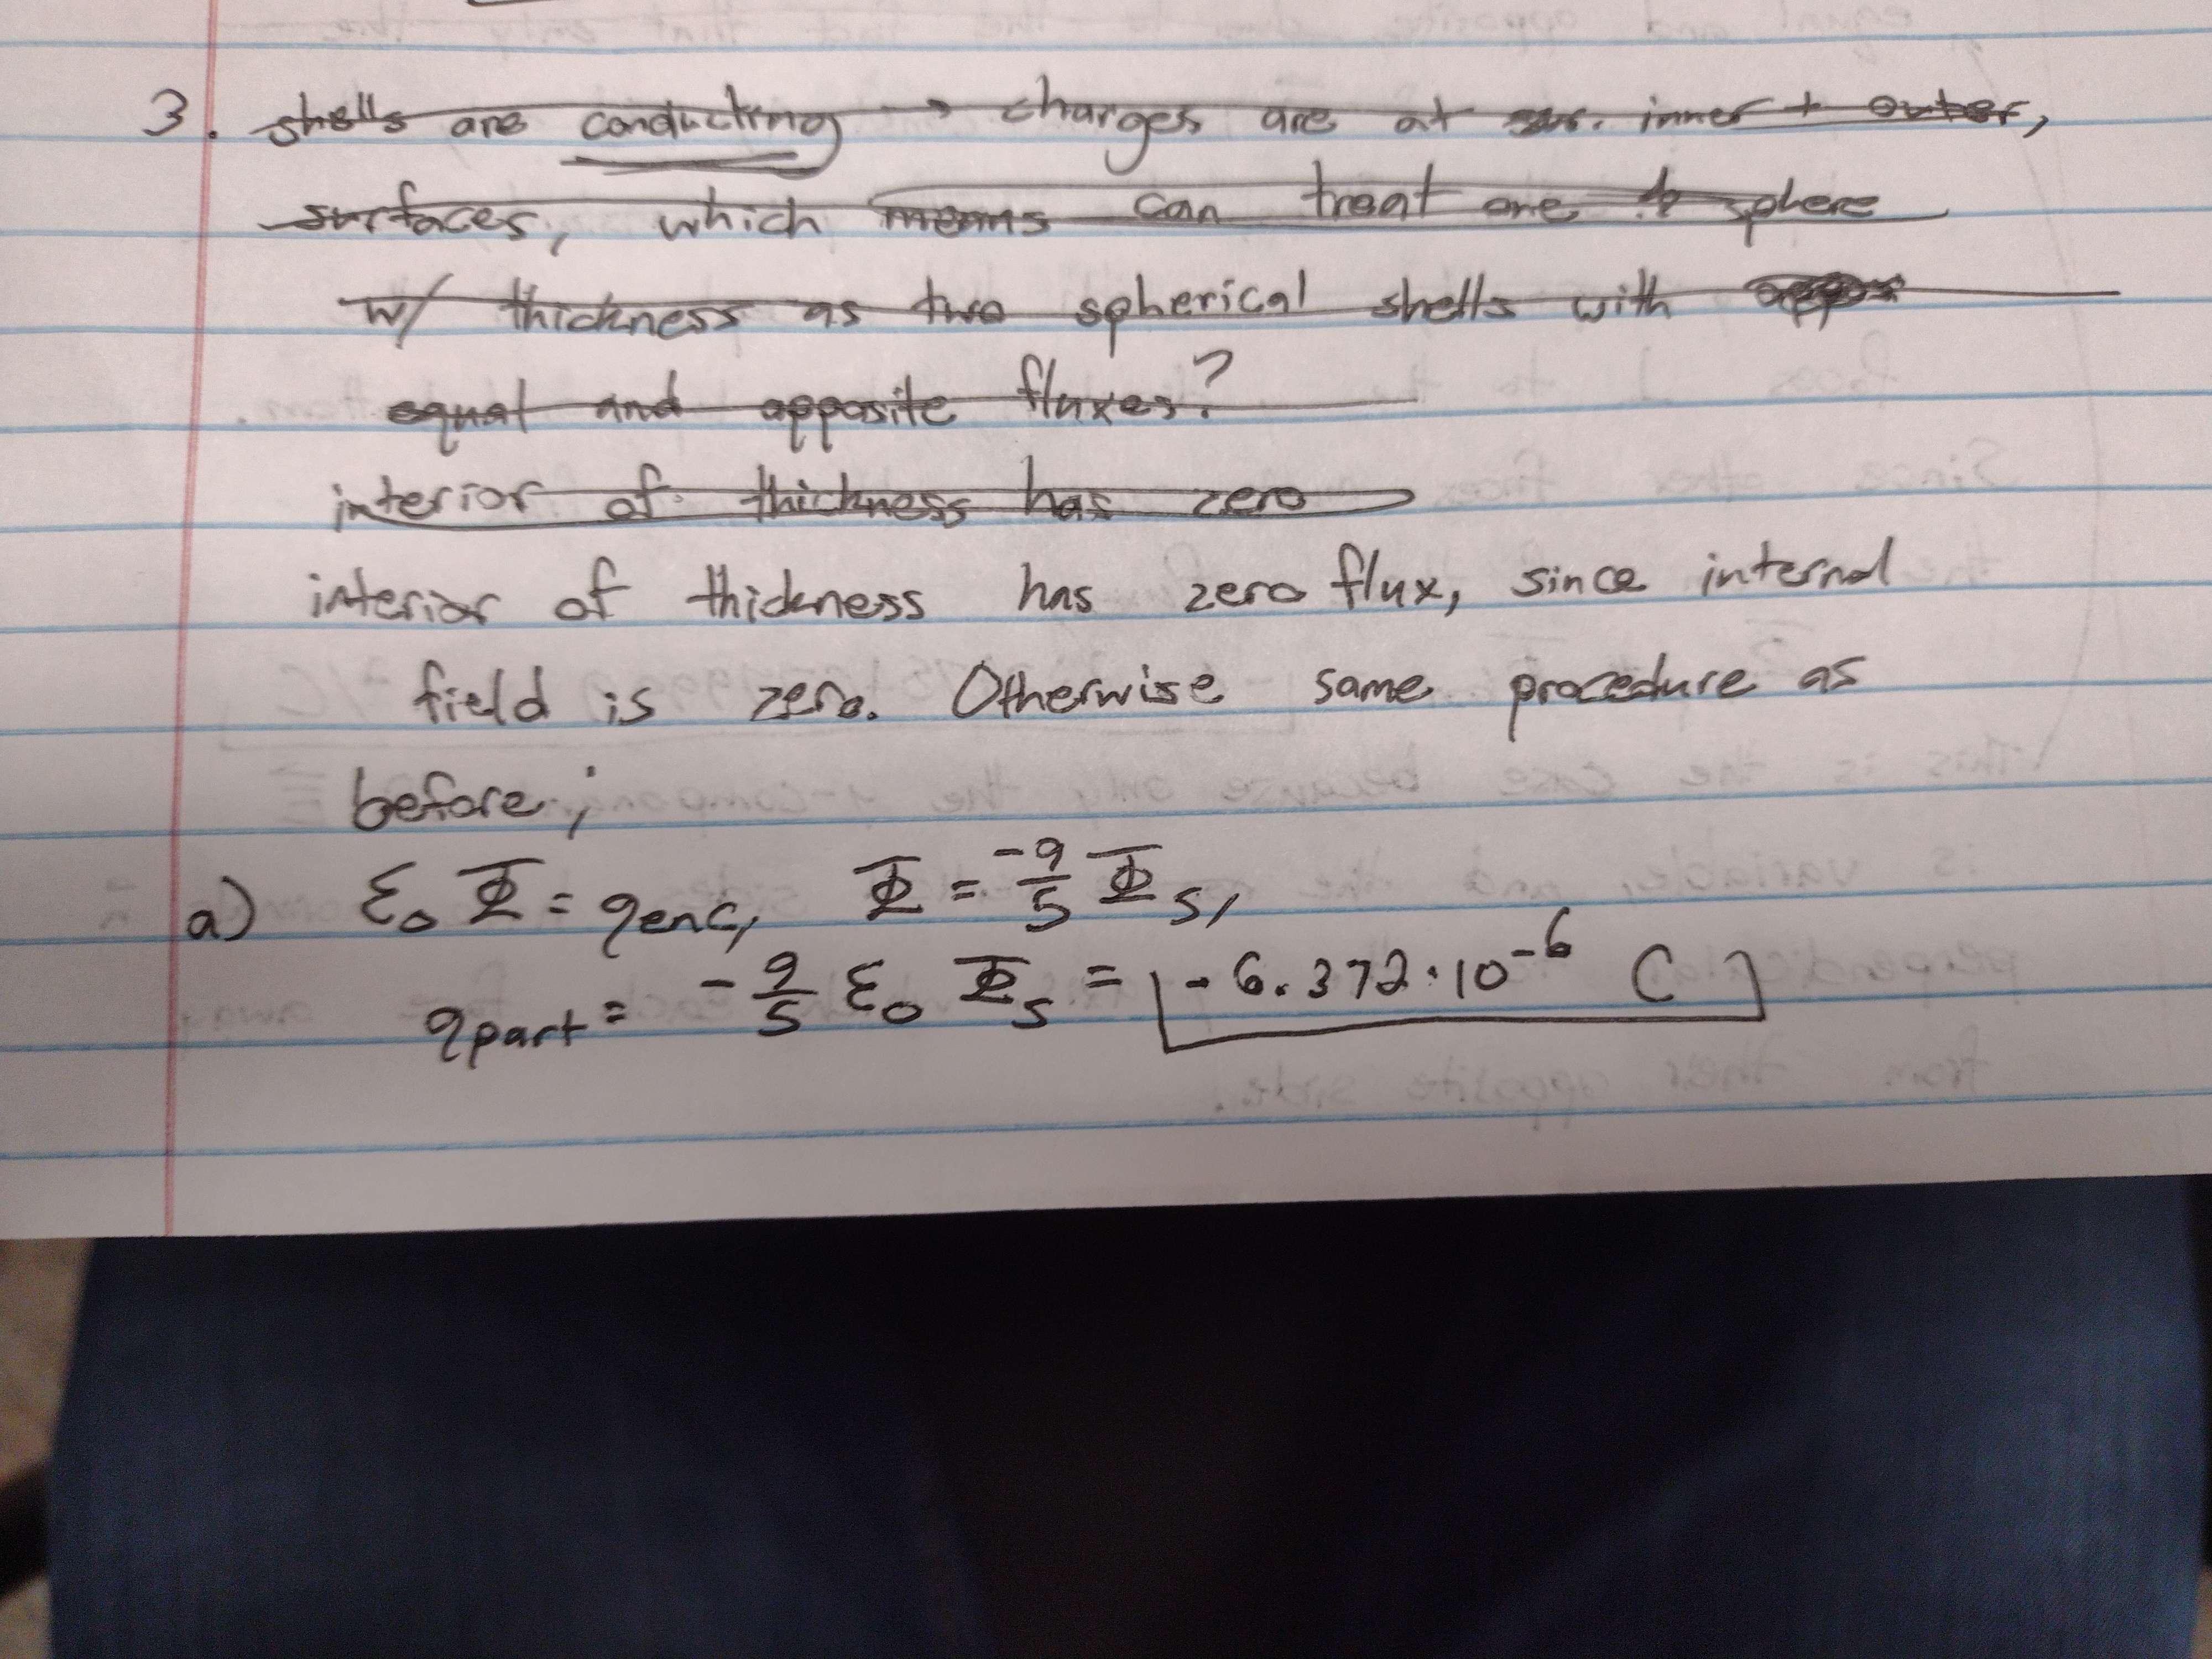 3. shells are conducting → charges are at sur. inner + outer,
surfaces, which means can treat one sphere
w/ thickness as two spherical shells with
equal and opposite fluxes?
interior of thickness has zero
interior of thickness has zero flux, since internal
field is zero. Otherwise same procedure as
before;
a) ε₀Φ = qenc, Φ = -9/5 Φs,
qpart = -9/5 ε₀ Φs = -6.372·10⁻⁶ C